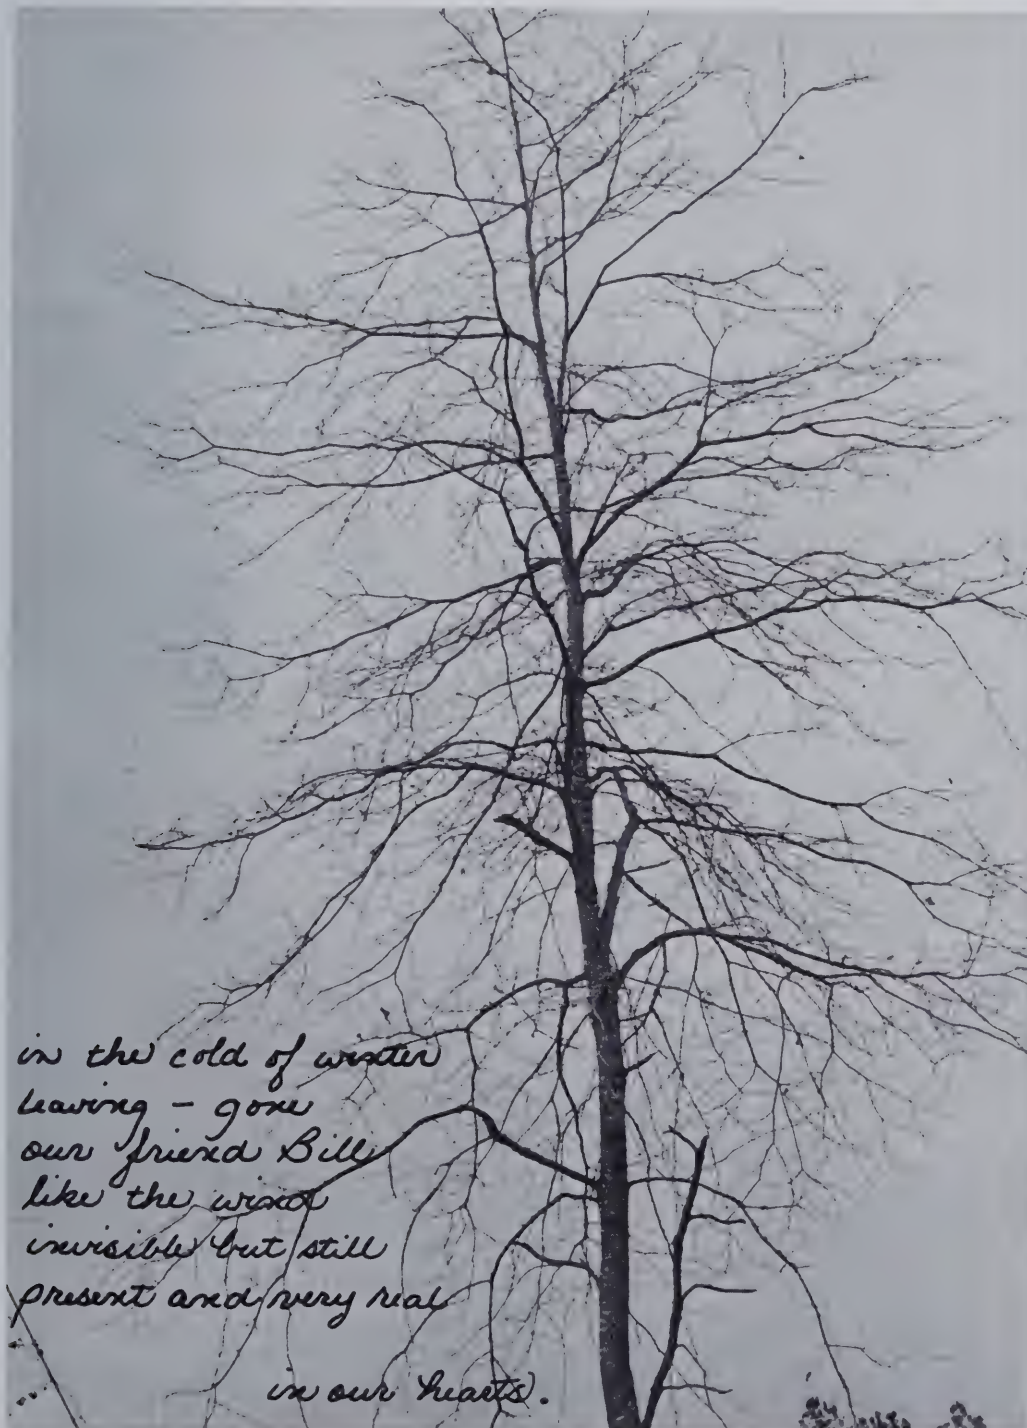 in the cold of winter
leaving – gone
our friend Bill
like the wind
invisible but still
present and very real
in our hearts.